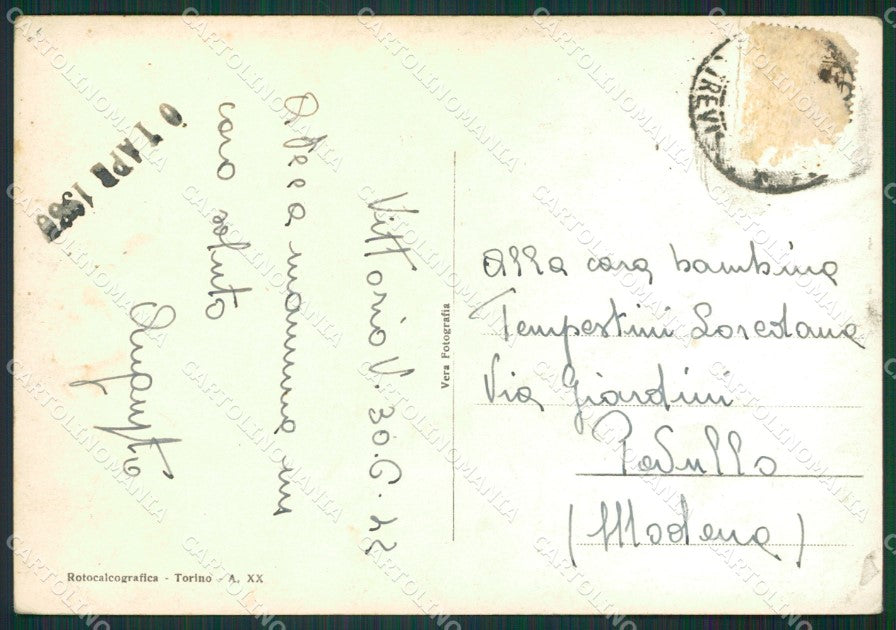 Vittorio V. 30.6.42
A Te e a mamma un
caro saluto
Augusta
01 APR 1986
Vera Fotografia
Alla cara bambina
Tempestini Loredana
Via Giardini
Pavullo
(Modena)
Rotocalcografica - Torino - A. XX
CARTOLINOMANIA